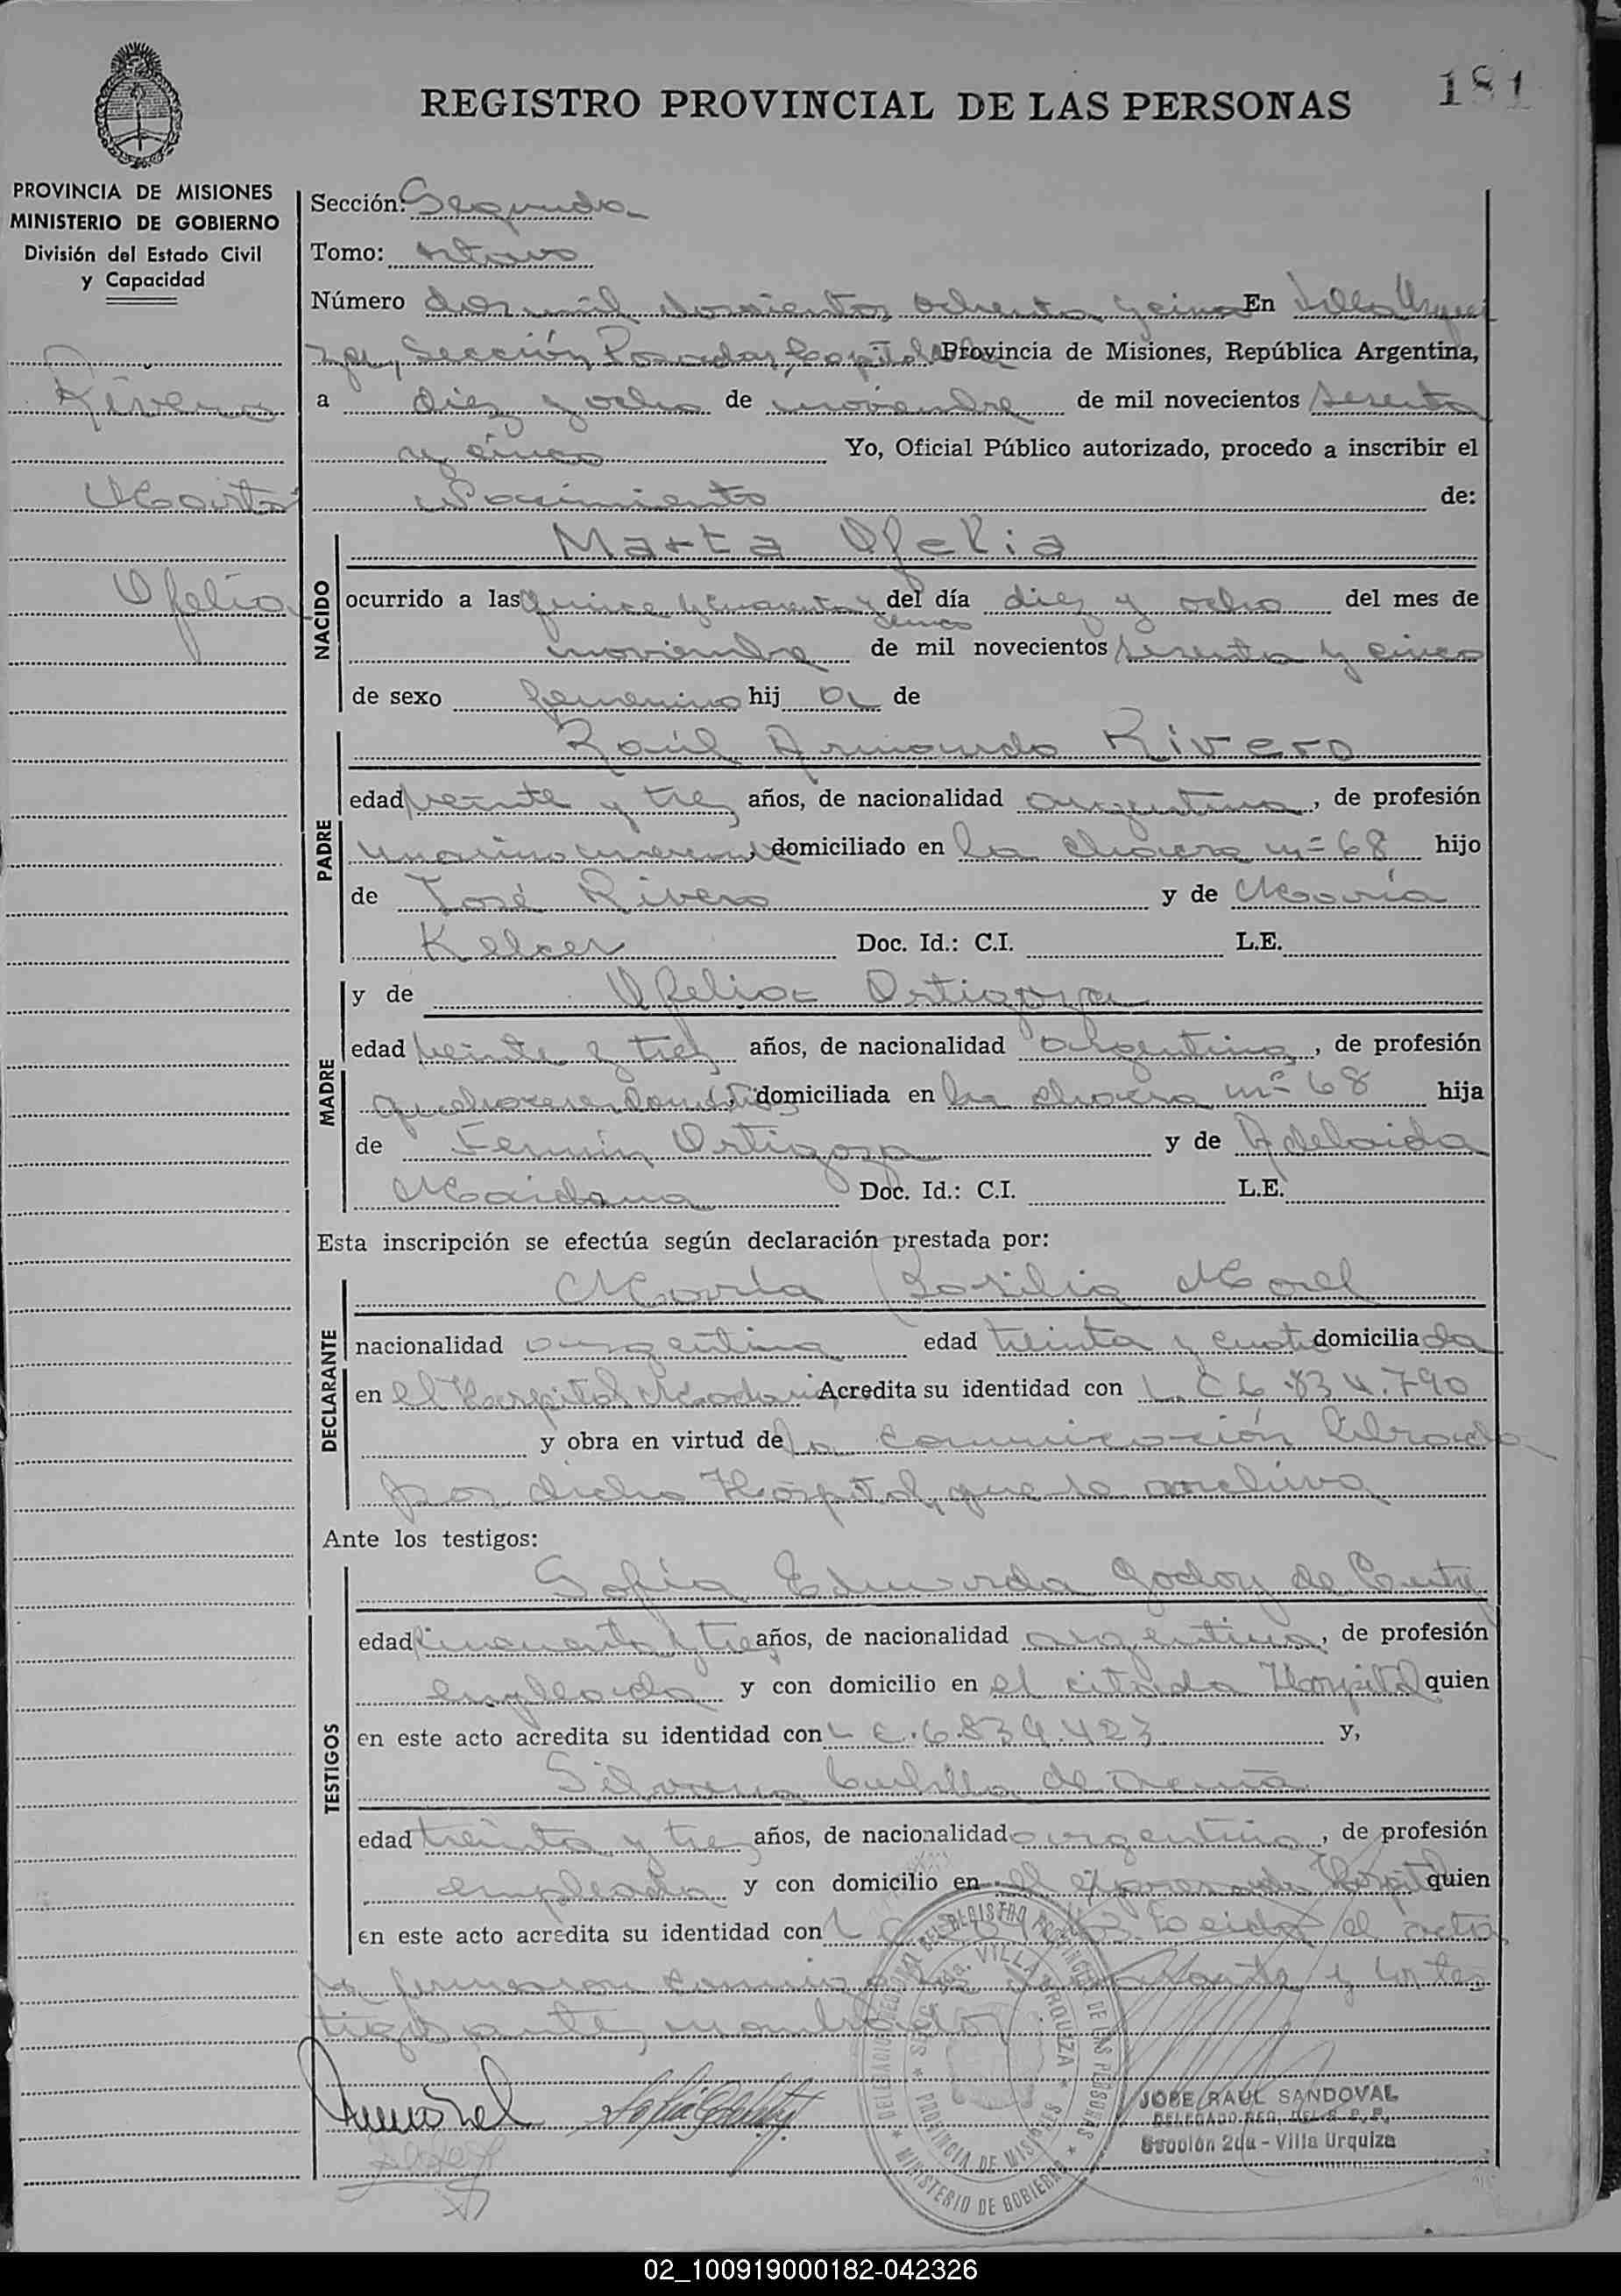 181
REGISTRO PROVINCIAL DE LAS PERSONAS
PROVINCIA DE MISIONES
MINISTERIO DE GOBIERNO
División del Estado Civil
y Capacidad
Rivero
Marta
Ofelia
Sección: Segunda
Tomo: octavo
Número dos mil doscientos ochenta y cinco En Villa Urqui
za, Sección Posadas, Capital Provincia de Misiones, República Argentina,
a diez y ocho de noviembre de mil novecientos sesenta
y cinco Yo, Oficial Público autorizado, procedo a inscribir el
Nacimiento de:
NACIDO
Marta Ofelia
ocurrido a las quince y cuarenta y cinco del día diez y ocho del mes de
noviembre de mil novecientos sesenta y cinco
de sexo femenino hij a de
PADRE
Raúl Armando Rivero
edad veinte y tres años, de nacionalidad argentina, de profesión
marino mercante, domiciliado en la chacra nº 68 hijo
de José Rivero y de María
Kelcer Doc. Id.: C.I. L.E.
MADRE
y de Ofelia Ortigoza
edad veinte y tres años, de nacionalidad argentina, de profesión
quehaceres domésticos, domiciliada en la chacra nº 68 hija
de Fermín Ortigoza y de Adelaida
Maidana Doc. Id.: C.I. L.E.
Esta inscripción se efectúa según declaración prestada por:
DECLARANTE
María Basilia Morel
nacionalidad argentina edad treinta y cuatro domiciliada
en el Hospital Madariaga Acredita su identidad con L.C. 6.834.790
y obra en virtud de la comunicación librada
por dicho Hospital, que se archiva
Ante los testigos:
TESTIGOS
Sofía Eduarda Godoy de
edad cincuenta y tres años, de nacionalidad argentina, de profesión
empleada y con domicilio en el citado Hospital quien
en este acto acredita su identidad con L.C. 6.839.423 y,
Silvana de
edad treinta y tres años, de nacionalidad argentina, de profesión
empleada y con domicilio en el expresado Hospital quien
en este acto acredita su identidad con L.C. Leída el acta
la firmaron conmigo y los tes
tigos antes nombrados
DELEGACION DEL REGISTRO PROVINCIAL DE LAS PERSONAS
MINISTERIO DE GOBIERNO
SECC. 2da. VILLA URQUIZA
PROVINCIA DE MISIONES
JOSE RAUL SANDOVAL
DELEGADO REG. DEL R. P. P.
Sección 2da - Villa Urquiza
02_100919000182-042326